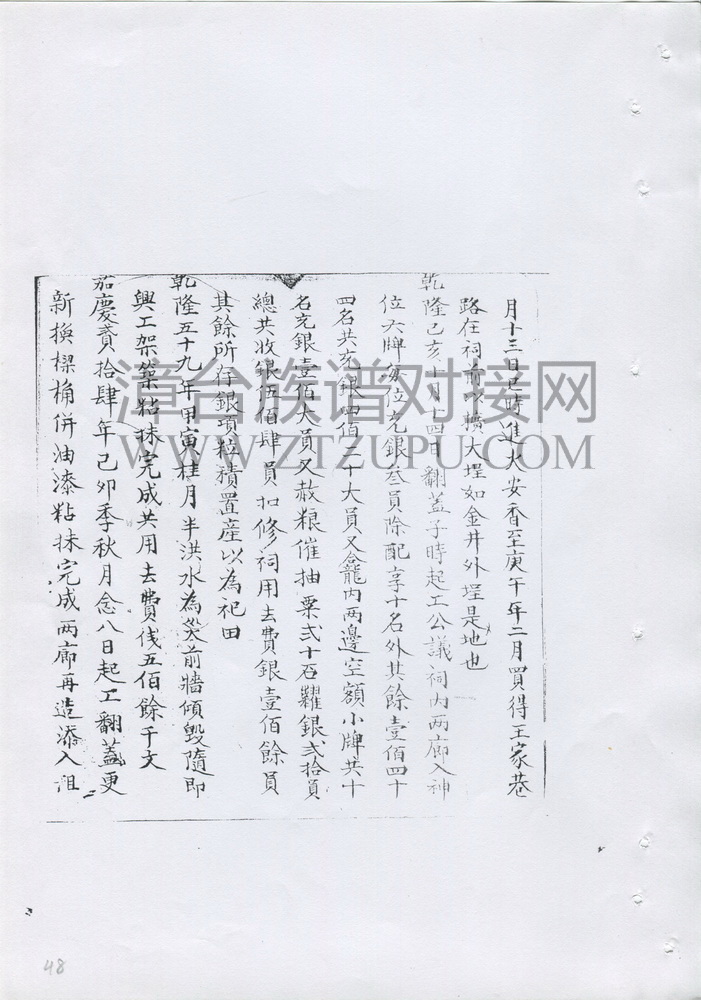 月十三日巳時進火安香至庚午年二月買得王家巷
路在祠前以擴大埕如金井外埕是地也
乾隆己亥十月十四日翻蓋子時起工公議祠內兩廊入神
位大牌每位充銀叁員除配享十名外其餘壹佰四十
四名共充銀四佰二十大員又龕內兩邊空額小牌共十
名充銀壹佰大員又赦粮催抽粟弍十石糶銀弍拾員
總共收銀五佰肆員扣修祠用去費銀壹佰餘員
其餘所存銀項粒積置產以為祀田
乾隆五十九年甲寅桂月半洪水為災前牆傾毀隨即
興工架築粘抹完成共用去費伐五佰餘千文
嘉慶貳拾肆年己卯季秋月念八日起工翻蓋更
新換樑桷併油漆粘抹完成兩廊再造添入祖
漳台族谱对接网
WWW.ZTZUPU.COM
48